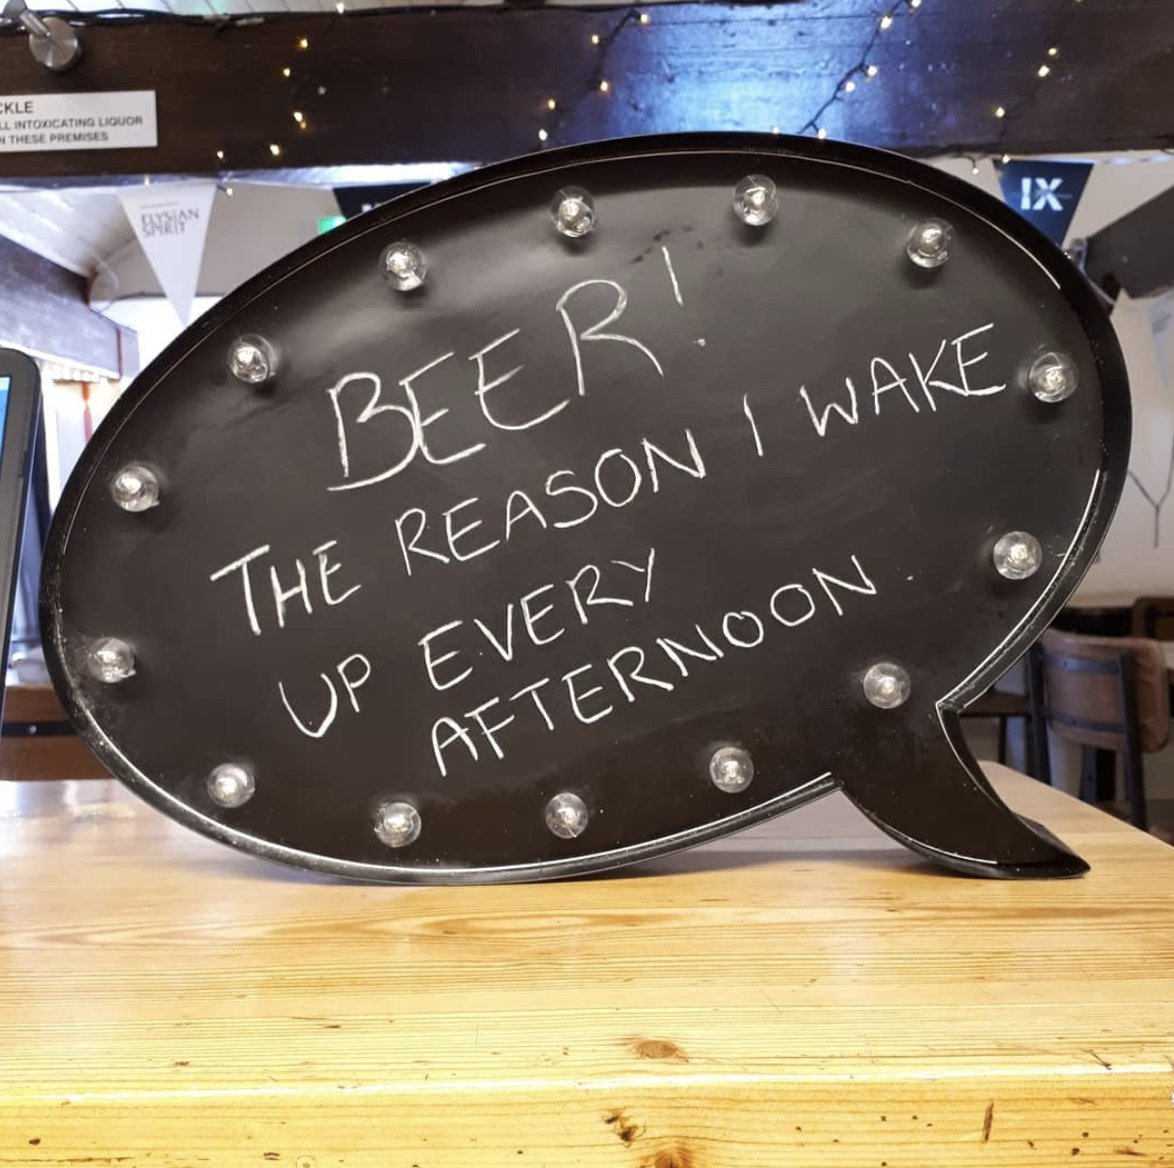 CKLE
LL INTOXICATING LIQUOR
N THESE PREMISES
ELYSIAN
SPIRIT
IX
BEER!
THE REASON I WAKE
UP EVERY
AFTERNOON